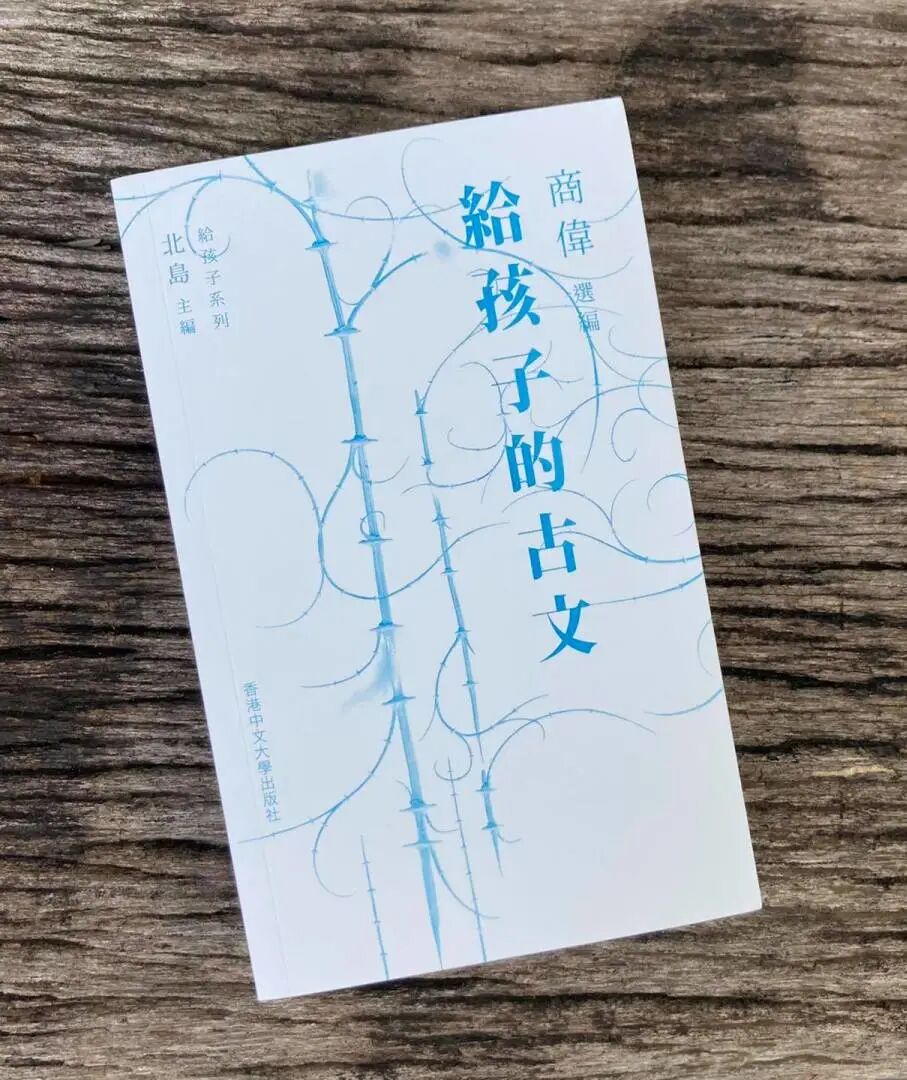 商偉 選編
給孩子的古文
給孩子系列
北島 主編
香港中文大學出版社